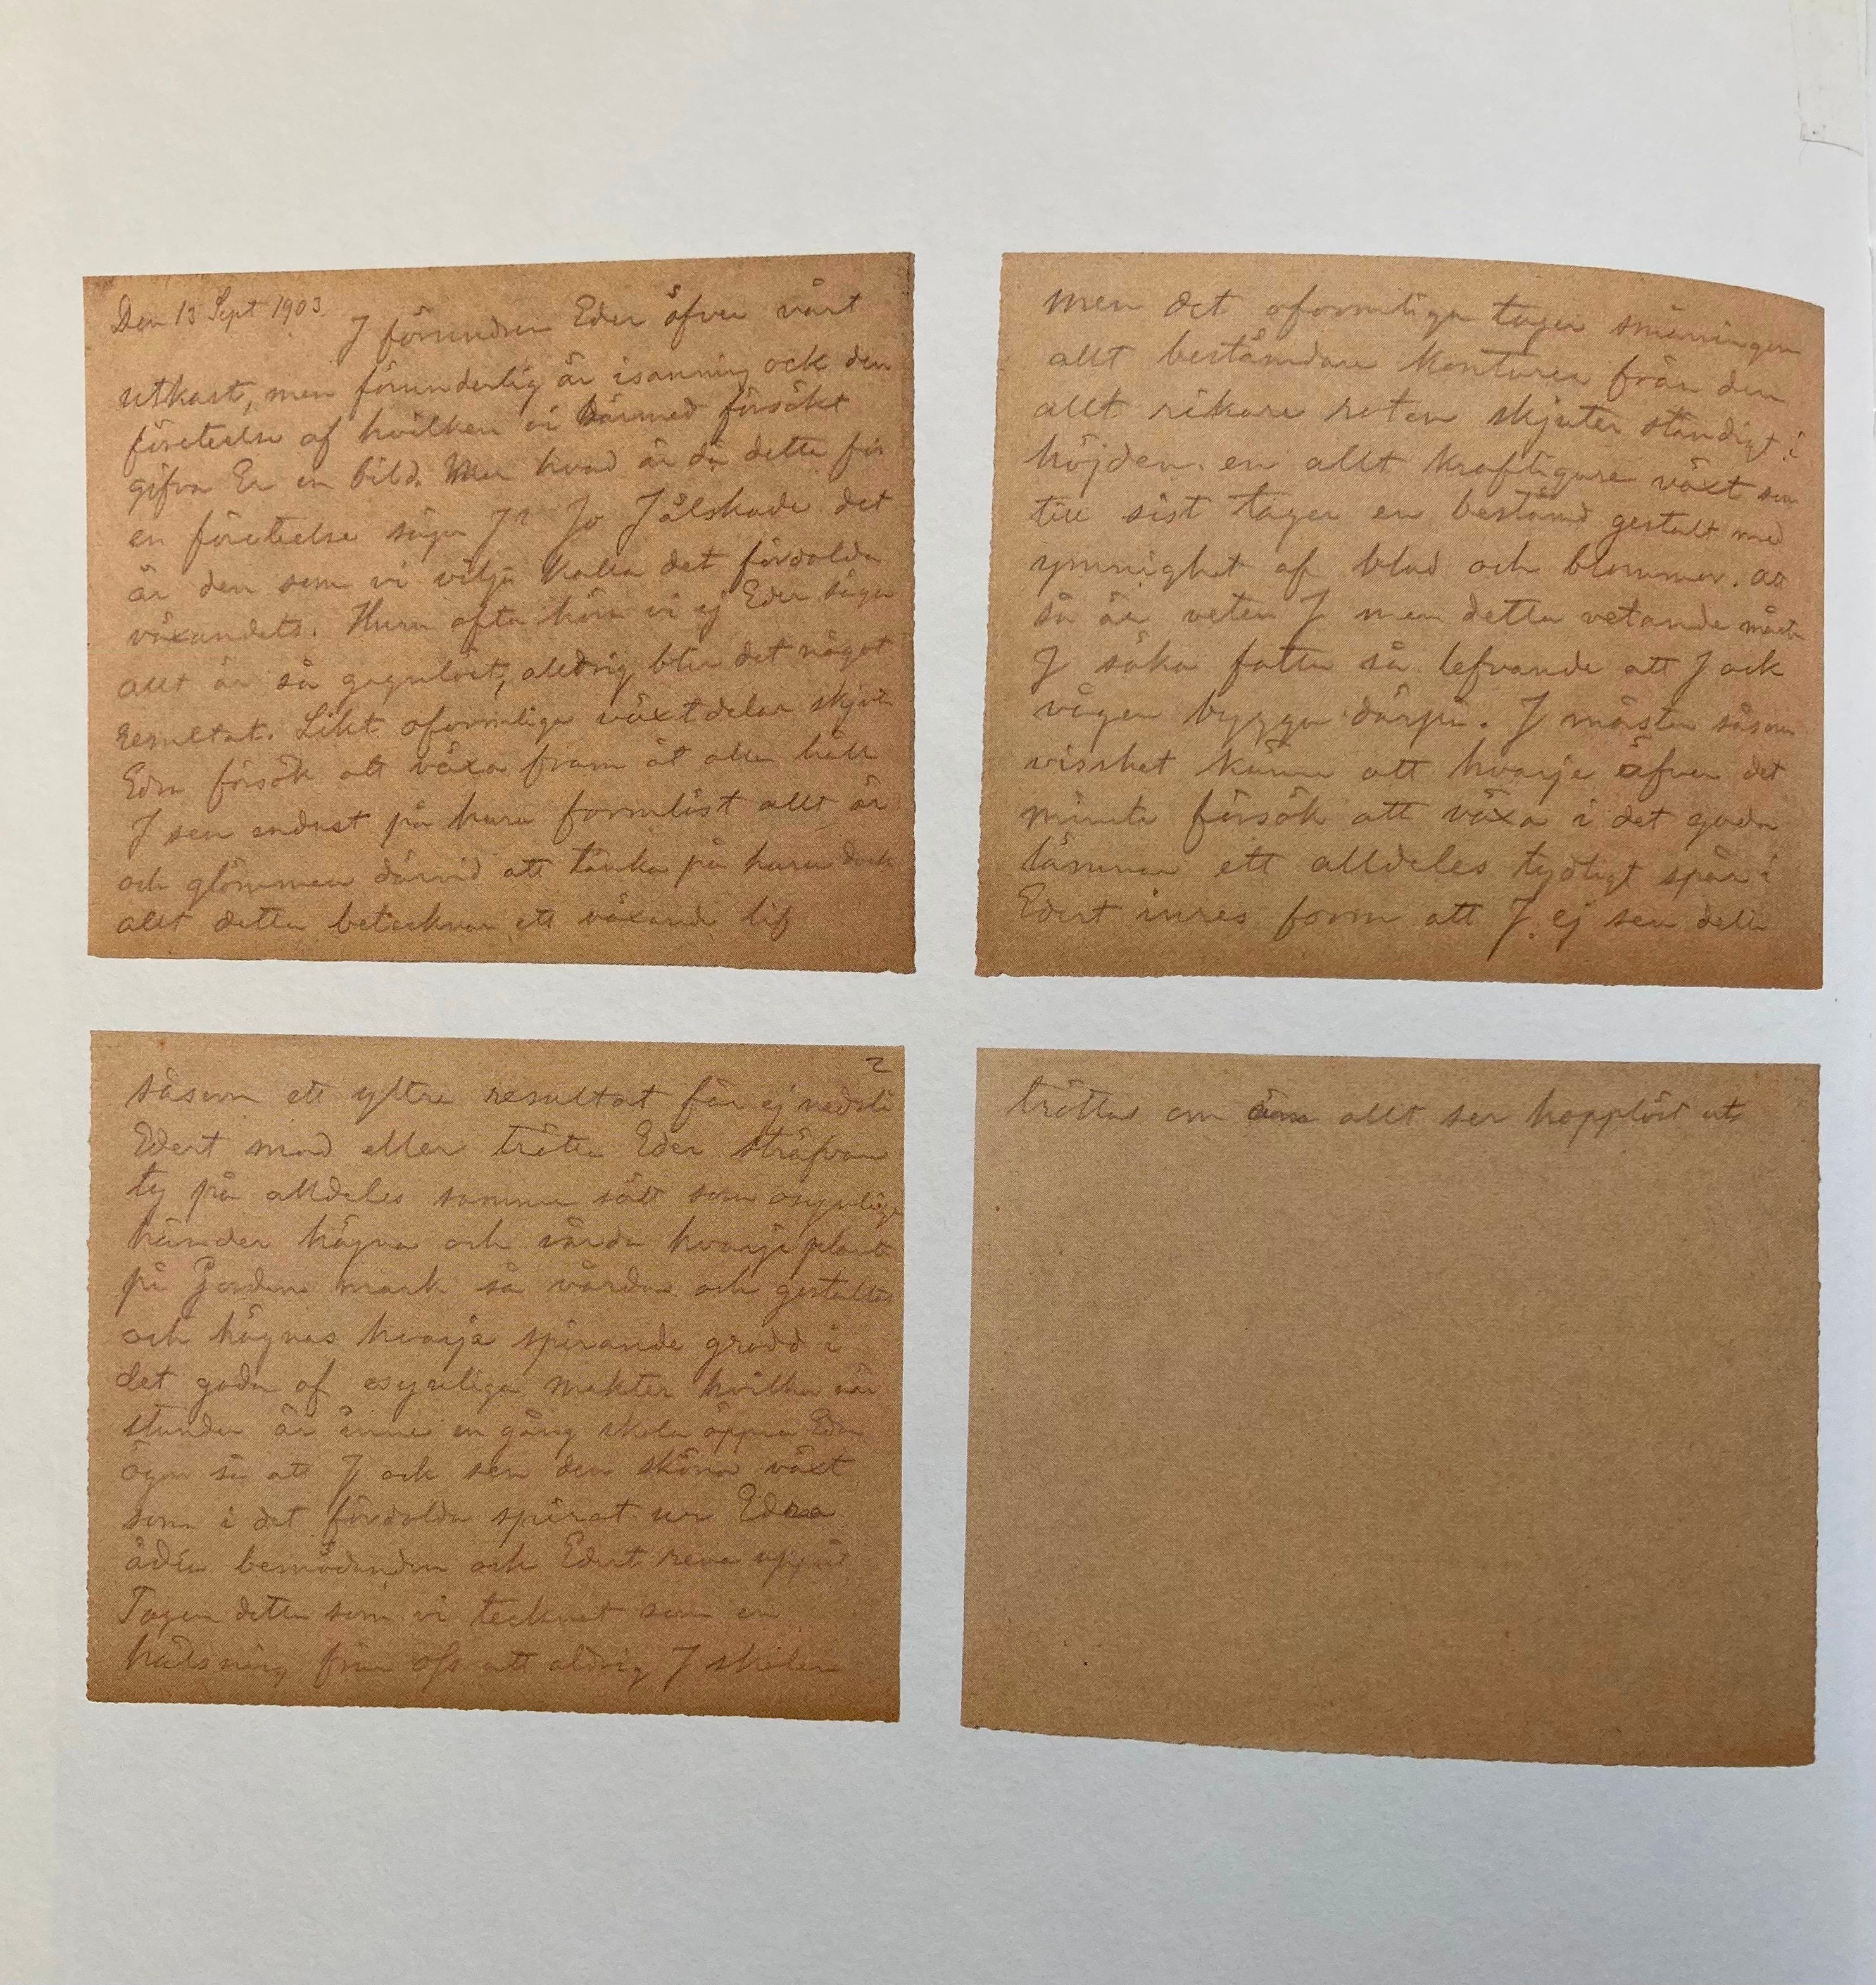 Den 13 Sept 1903.
J förundren Eder öfver vårt
utkast, men förunderlig är i sanning ock den
företeelse af hvilken vi härmed försökt
gifva Er en bild. Men hvad är då detta för
en företeelse sägen J? Jo J älskade det
är den som vi vilja kalla det fördolda
växandets. Huru ofta höra vi ej Eder säga
allt är så gagnlöst, alldrig blir det något
resultat. Likt oformliga växtdelar skjuta
Edra försök att växa fram åt alla håll
J sen endast på huru formlöst allt är
och glömmen därvid att tänka på huru dock
allt detta betecknar ett växande lif
men det oformliga tager småningom
allt bestämdare konturer från den
allt rikare roten skjuter ständigt i
höjden en allt kraftigare växt som
till sist tager en bestämd gestalt med
ymnighet af blad och blommor. att
så är veten J men detta vetande måste
J söka fatta så lefvande att J ock
vågen bygga därpå. J måsten såsom
visshet känna att hvarje äfven det
minsta försök att växa i det goda
lämnar ett alldeles tydligt spår i
Edert inres form att J ej sen detta
2
såsom ett yttre resultat får ej nedslå
Edert mod eller trötta Eder sträfvan
ty på alldeles samma sätt som osynliga
händer hägna och vårda hvarje planta
på Jordens mark så vårdas och gestaltas
och hägnas hvarje spirande grodd i
det goda af osynliga makter hvilka när
stunden är inne en gång skola öppna Edra
ögon så att J ock sen den sköna växt
som i det fördolda spirat ur Edra
ädla bemödanden och Edert rena uppsåt
Tagen detta som vi tecknat som en
hälsning från oss att aldrig J skolen
tröttas om än allt ser hopplöst ut